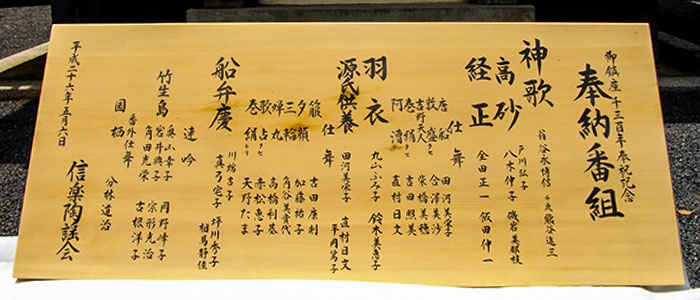 御鎮座千三百年奉祝記念
奉納番組
神歌
翁 谷永博信 千歳 鵜谷逸三
高砂
戸川弘子
八木伸子 磯岩美銀枝
経正
金田正一 飯田伸一
仕舞
唐船 田河美栄子
敦盛クセ 合澤美沙
吉野天人 柴橋美穂
巻絹クセ 吉田照美
阿漕 直村日文
羽衣
丸山ふみ子 鈴木美恵子
源氏供養
田河美栄子 直村日文
平岡篤子
仕舞
箙 吉田康則
夕顔 加藤祐子
三輪 角谷美貴代
蝉丸 高橋利基
歌占クセ 赤松恵子
巻絹キリ 天野たま
船弁慶
川端吉子 坪川秀子
真乃宅子 相馬静佳
連吟
竹生島
奥山幸子 岡野峰子
岩井典子 宗形光治
角田光栄 吉根洋子
番外仕舞
国栖 分林道治
平成二十六年五月六日
信楽陶謡会